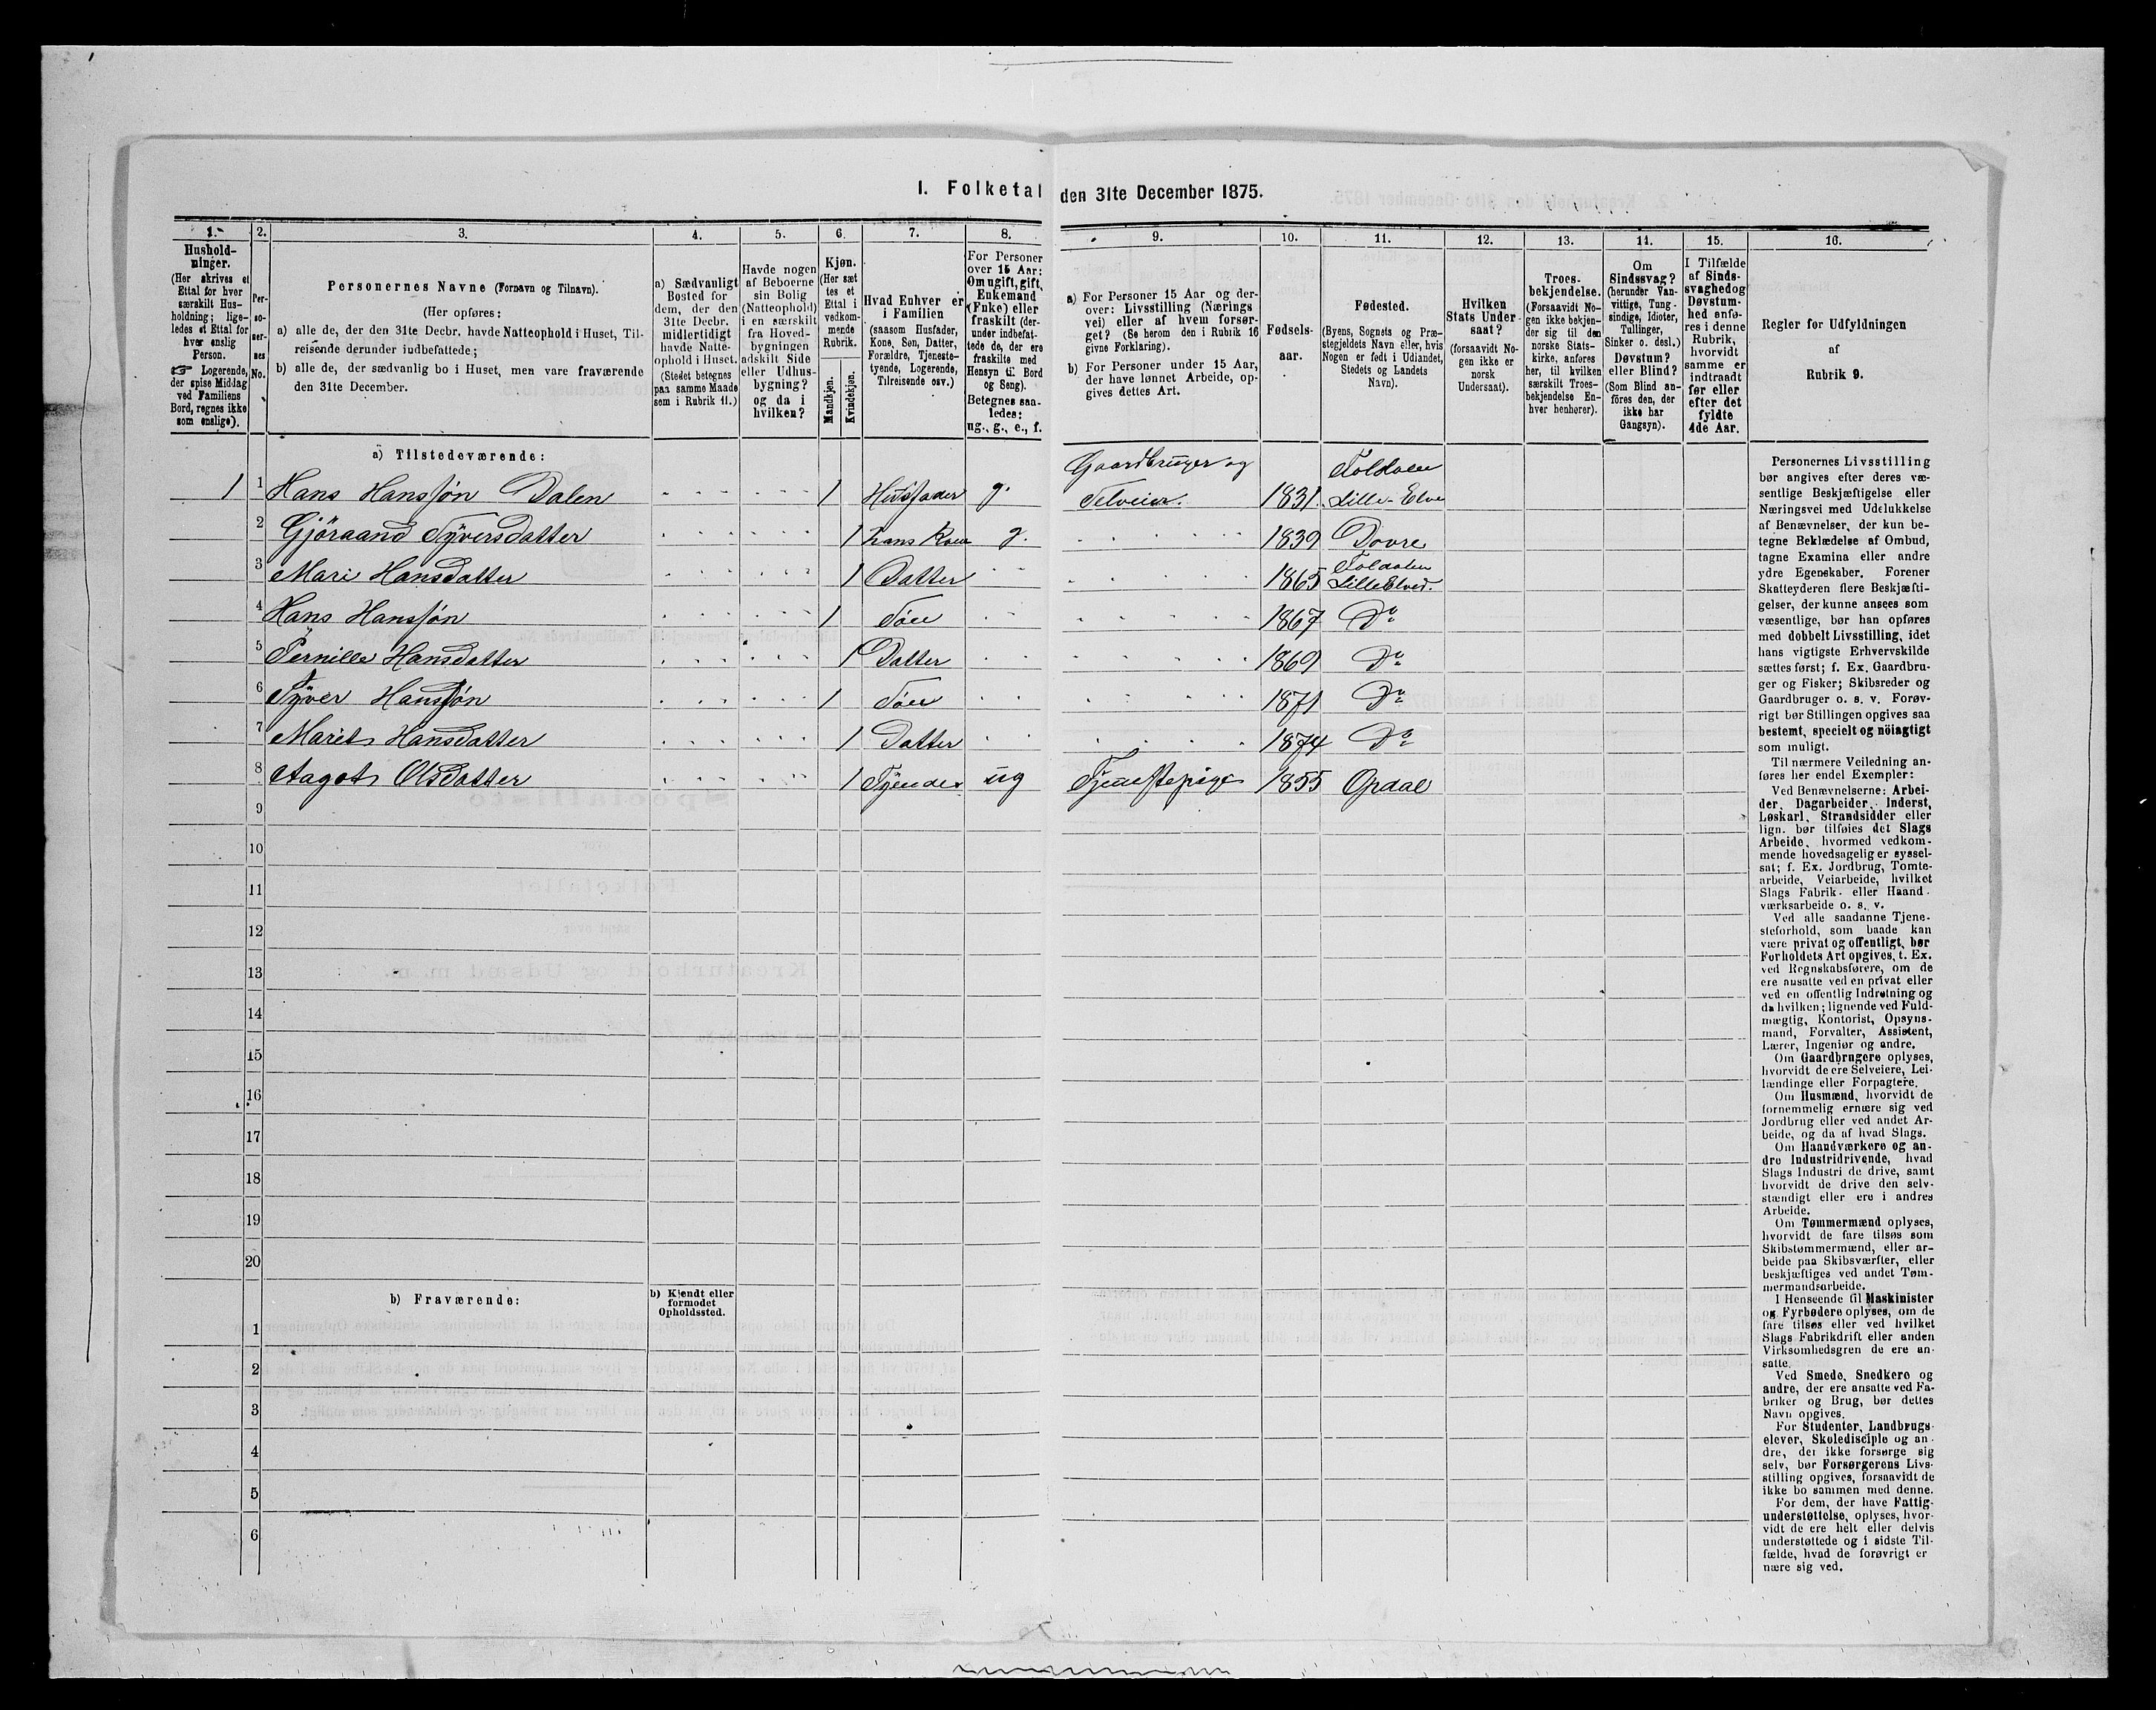 I. Folketal den 31te December 1875.
1.
Hushold-
ninger.
(Her skrives et
Ettal for hver
særskilt Hus-
holdning; lige-
ledes et Ettal for
hver enslig
Person.
☞ Logerende,
der spise Middag
ved Familiens
Bord, regnes ikke
som enslige).
2.
Per-
so-
ner-
nes
No.
3.
Personernes Navne (Fornavn og Tilnavn).
(Her opføres:
a) alle de, der den 31te Decbr. havde Natteophold i Huset, Til-
reisende derunder indbefattede;
b) alle de, der sædvanlig bo i Huset, men vare fraværende
den 31te December.
4.
a) Sædvanligt
Bosted for
dem, der den
31te Decbr.
midlertidigt
havde Natte-
ophold i Huset.
(Stedet betegnes
paa samme Maade
som i Rubrik 11.)
5.
Havde nogen
af Beboerne
sin Bolig
(Natteophold)
i en særskilt
fra Hoved-
bygningen
adskilt Side
eller Udhus-
bygning?
og da i
hvilken?
6.
Kjøn.
(Her sæt
tes et
Ettal i
vedkom-
mende
Rubrik.
Mandkjøn.
Kvindekjøn.
7.
Hvad Enhver er
i Familien
(saasom Husfader,
Kone, Søn, Datter,
Forældre, Tjeneste-
tyende, Logerende,
Tilreisende osv.)
8.
For Personer
over 15 Aar:
Om ugift, gift,
Enkemand
(Enke) eller
fraskilt (der-
under indbefat-
tede de, der ere
fraskilte med
Hensyn til Bord
og Seng).
Betegnes saa-
ledes:
ug., g., e., f.
9.
a) For Personer 15 Aar og der-
over: Livsstilling (Nærings
vei) eller af hvem forsør-
get? (Se herom den i Rubrik 16
givne Forklaring).
b) For Personer under 15 Aar,
der have lønnet Arbeide, op-
gives dettes Art.
10.
Fødsels-
aar.
11.
Fødested.
(Byens, Sognets og Præ-
stegjeldets Navn eller, hvis
Nogen er født i Udlandet,
Stedets og Landets
Navn).
12.
Hvilken
Stats Under-
saat?
(forsaavidt No-
gen ikke er
norsk
Undersaat).
13.
Troes-
bekjendelse.
(Forsaavidt No-
gen ikke bekjen-
der sig til den
norske Stats-
kirke, anføres
her, til hvilken
særskilt Troes-
bekjendelse En-
hver henhører).
14.
Om
Sindssvag?
(herunder Van-
vittige, Tung-
sindige, Idioter,
Tullinger,
Sinker o. desl.)
Døvstum?
eller Blind?
(Som Blind an-
føres den, der
ikke har
Gangsyn).
15.
I Tilfælde
af Sinds-
svaghed og
Døvstum-
hed anfø-
res i denne
Rubrik,
hvorvidt
samme er
indtraadt
før eller
efter det
fyldte
4de Aar.
16.
Regler for Udfyldningen
af
Rubrik 9.
a) Tilstedeværende:
1 1 Hans Hanssøn Dalen 1 Husfader g. Gaardbruger og Selveier. 1831. Foldalen Lille-Elve
2 Gjøraand Syversdatter 1 hans Kone g. 1839 Dovre
3 Mari Hansdatter 1 Datter 1865 Foldalen LilleElved.
4 Hans Hanssøn 1 Søn 1867 Do
5 Pernille Hansdatter 1 Datter 1869 Do
6 Syver Hanssøn 1 Søn 1871 Do
7 Marit Hansdatter 1 Datter 1874 Do
8 Aagot Olsdatter 1 Tyende ug Tjenestepige 1855 Opdal
9
10
11
12
13
14
15
16
17
18
19
20
b) Fraværende:
b) Kjendt eller
formodet
Opholdssted.
1
2
3
4
5
6
Personernes Livsstilling
bør angives efter deres væ-
sentlige Beskjæftigelse eller
Næringsvei med Udelukkelse
af Benævnelser, der kun be-
tegne Beklædelse af Ombud,
tagne Examina eller andre
ydre Egenskaber. Forener
Skatteyderen flere Beskjæfti-
gelser, der kunne ansees som
væsentlige, bør han opføres
med dobbelt Livsstilling, idet
hans vigtigste Erhvervskilde
sættes først; f. Ex. Gaardbru-
ger og Fisker; Skibsreder og
Gaardbruger o. s. v. Forøv-
rigt bør Stillingen opgives saa
bestemt, specielt og nöiagtigt
som muligt.
Til nærmere Veiledning an-
føres her endel Exempler:
Ved Benævnelserne: Arbei-
der, Dagarbeider, Inderst,
Løskarl, Strandsidder eller
lign. bør tilføies det Slags
Arbeide, hvormed vedkom-
mende hovedsagelig er syssel-
sat; f. Ex. Jordbrug, Tomte-
arbeide, Veiarbeide, hvilket
Slags Fabrik- eller Haand-
værksarbeide o. s. v.
Ved alle saadanne Tjene-
steforhold, som baade kan
være privat og offentligt, bør
Forholdets Art opgives, f. Ex.
ved Regnskabsførere, om de
ere ansatte ved en privat eller
ved en offentlig Indretning og
da hvilken; lignende ved Fuld-
mægtig, Kontorist, Opsyns-
mand, Forvalter, Assistent,
Lærer, Ingeniør og andre.
Om Gaardbrugere oplyses,
hvorvidt de ere Selveiere, Lei-
lændinge eller Forpagtere.
Om Husmænd, hvorvidt de
fornemmelig ernære sig ved
Jordbrug eller ved andet Ar-
beide, og da af hvad Slags.
Om Haandværkere og an-
dre Industridrivende, hvad
Slags Industri de drive, samt
hvorvidt de drive den selv-
stændigt eller ere i andres
Arbeide.
Om Tømmermænd oplyses,
hvorvidt de fare tilsøs som
Skibstømmermænd, eller ar-
beide paa Skibsværfter, eller
beskjæftiges ved andet Tøm-
mermandsarbeide.
I Henseende til Maskinister
og Fyrbødere oplyses, om de
fare tilsøs eller ved hvilket
Slags Fabrikdrift eller anden
Virksomhedsgren de ere an-
satte.
Ved Smede, Snedkere og
andre, der ere ansatte ved Fa-
briker og Brug, bør dettes
Navn opgives.
For Studenter, Landbrugs-
elever, Skoledisciple og an-
dre, der ikke forsørge sig
selv, bør Forsørgerens Livs-
stilling opgives, forsaavidt de
ikke bo sammen med denne.
For dem, der have Fattig-
understøttelse, oplyses, hvor-
vidt de ere helt eller delvis
understøttede og i sidste Til-
fælde, hvad de forøvrigt er
nære sig ved.